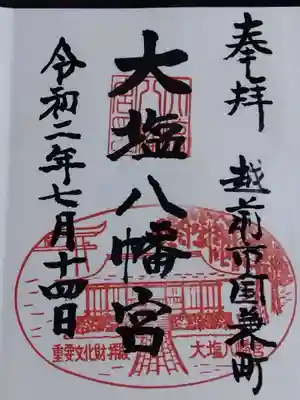 奉拝
越前市国兼町
大塩八幡宮
令和二年七月十四日
重要文化財拝殿
大塩八幡宮